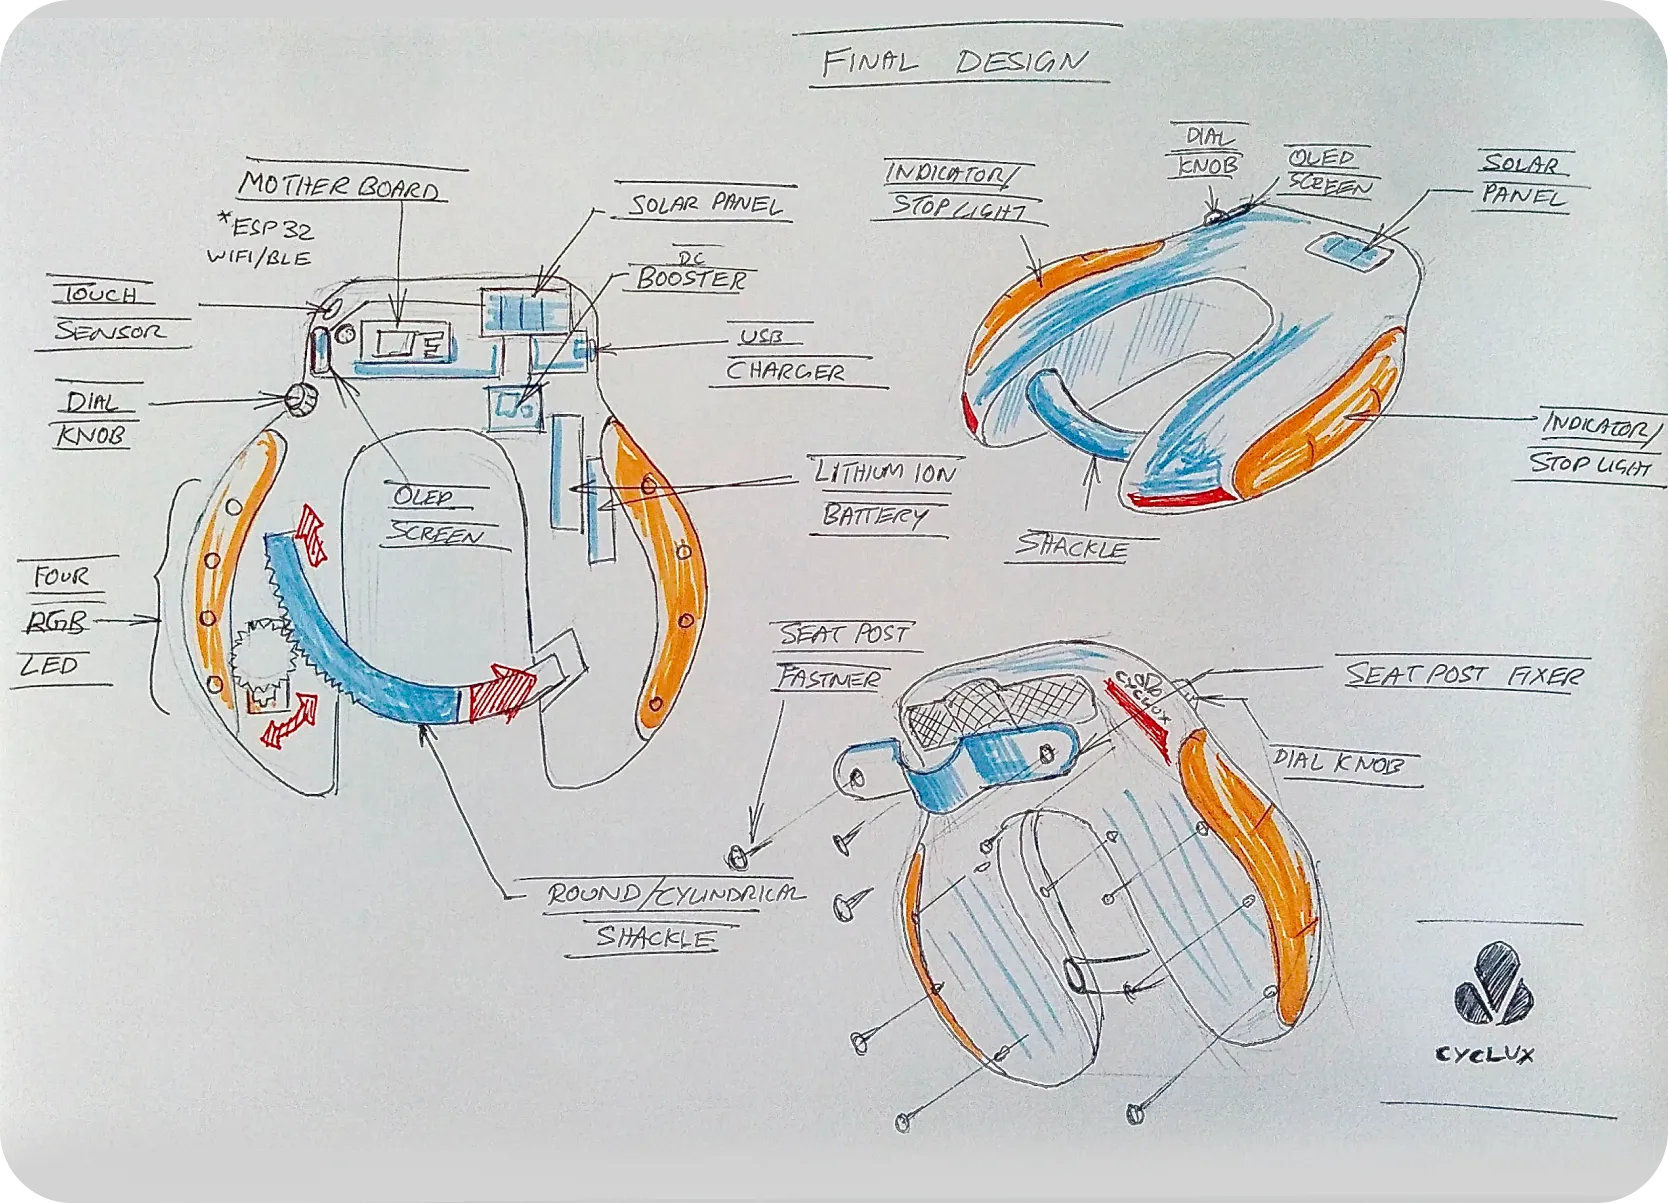 FINAL DESIGN
MOTHER BOARD
*ESP32
WIFI/BLE
SOLAR PANEL
DC
BOOSTER
TOUCH
SENSOR
USB
CHARGER
DIAL
KNOB
OLED
SCREEN
LITHIUM ION
BATTERY
FOUR
RGB
LED
ROUND/CYLINDRICAL
SHACKLE
INDICATOR/
STOP LIGHT
DIAL
KNOB
OLED
SCREEN
SOLAR
PANEL
INDICATOR/
STOP LIGHT
SHACKLE
SEAT POST
FASTNER
SEAT POST FIXER
CYCLUX
DIAL KNOB
CYCLUX